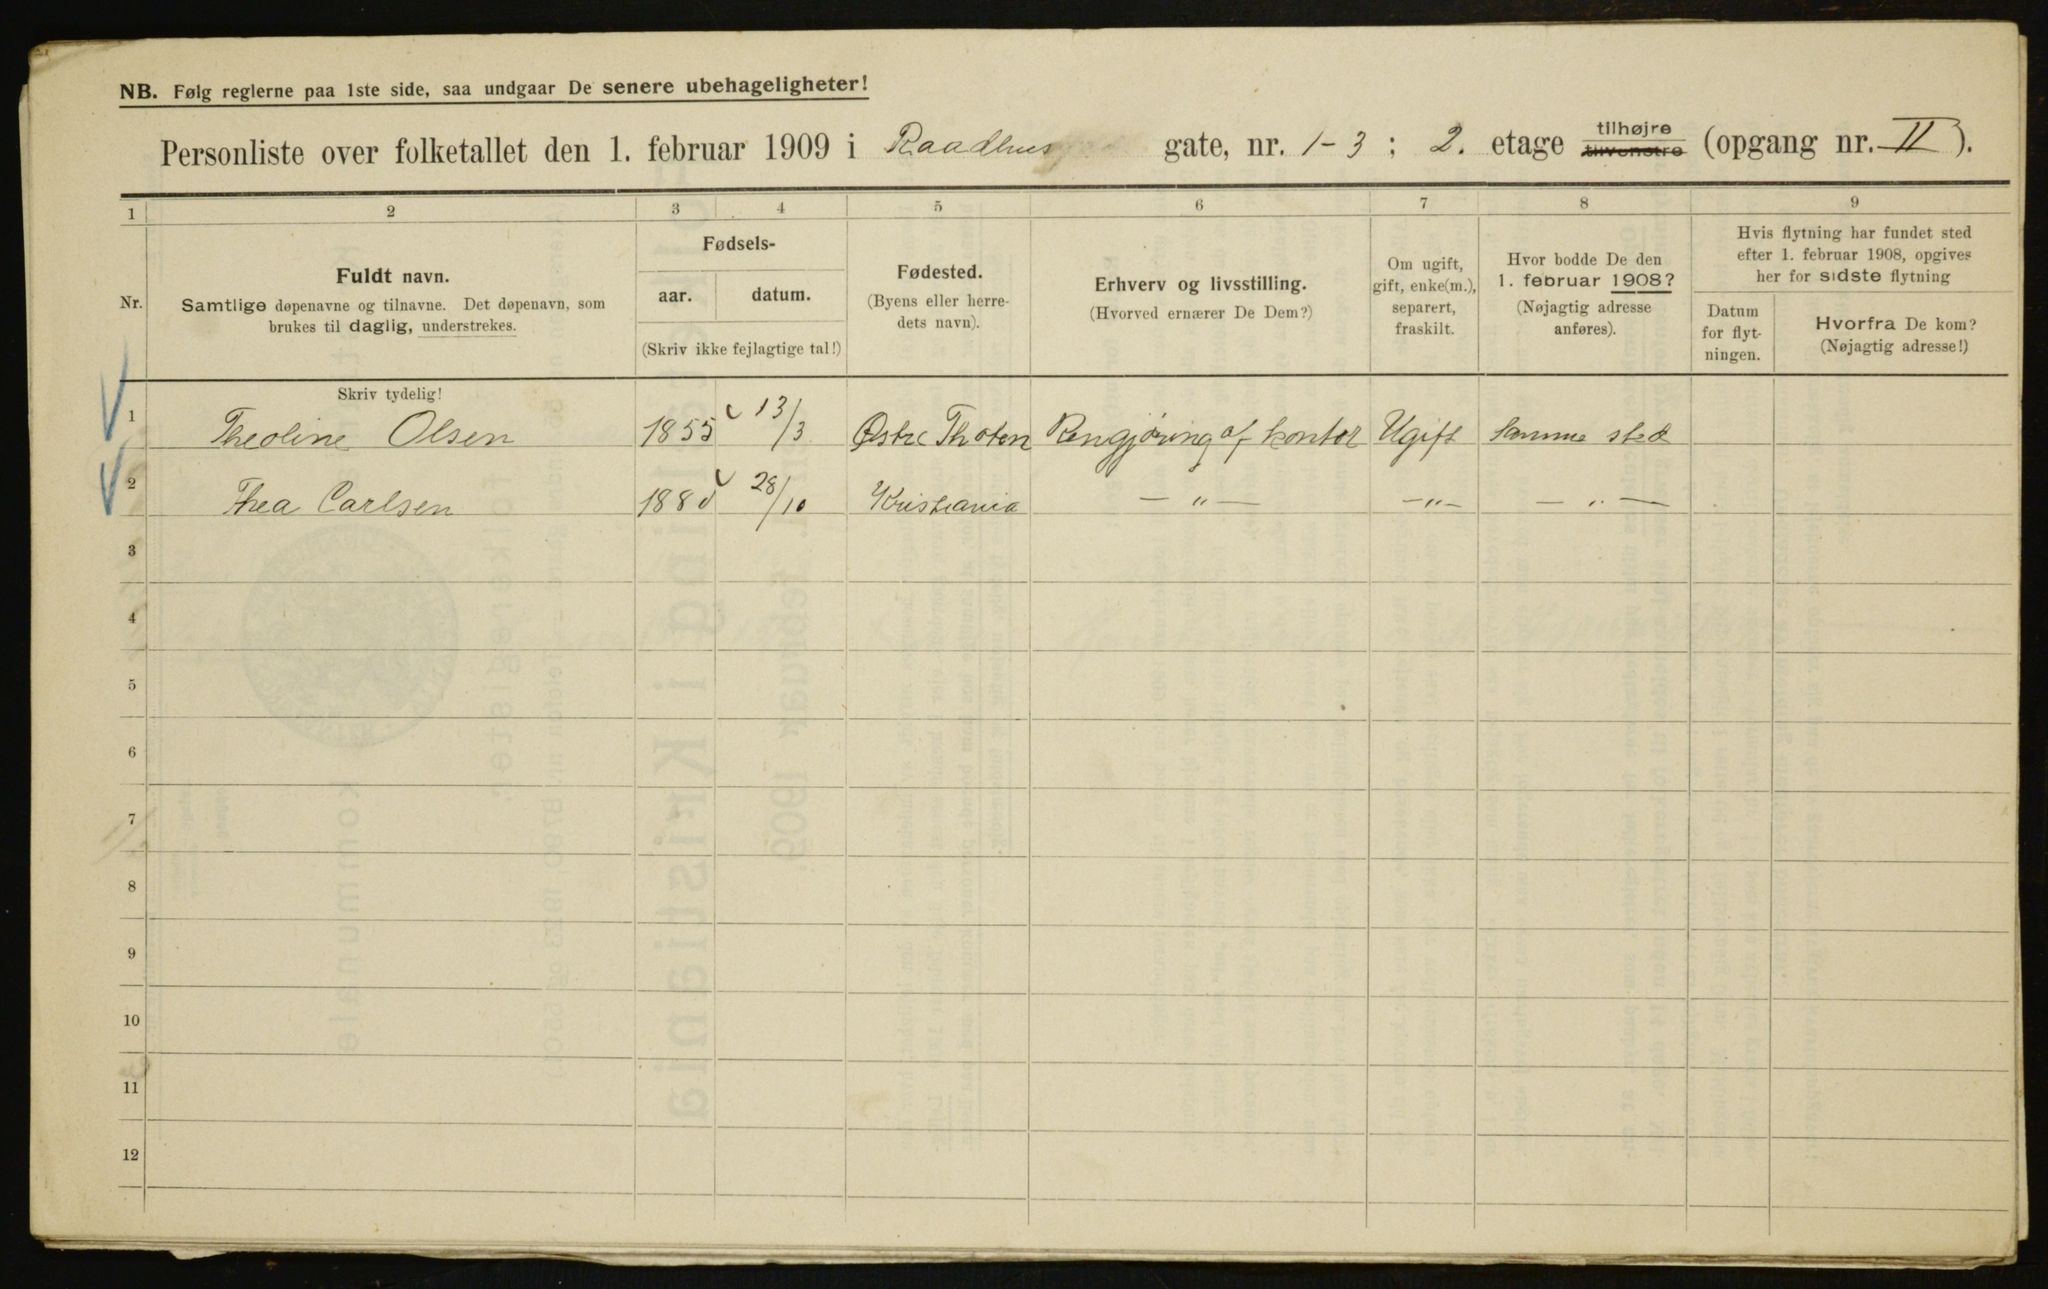 NB. Følg reglerne paa 1ste side, saa undgaar De senere ubehageligheter!
Personliste over folketallet den 1. februar 1909 i Raadhus gate, nr. 1-3 ; 2. etage tilhøjre tilvenstre (opgang nr. II).
1 2 3 4 5 6 7 8 9
Nr.
Fuldt navn.
Samtlige døpenavne og tilnavne. Det døpenavn, som
brukes til daglig, understrekes.
Fødsels-
aar. datum.
(Skriv ikke fejlagtige tal!)
Fødested.
(Byens eller herre-
dets navn).
Erhverv og livsstilling.
(Hvorved ernærer De Dem?)
Om ugift,
gift, enke(m.),
separert,
fraskilt.
Hvor bodde De den
1. februar 1908?
(Nøjagtig adresse
anføres).
Hvis flytning har fundet sted
efter 1. februar 1908, opgives
her for sidste flytning
Datum
for flyt-
ningen.
Hvorfra De kom?
(Nøjagtig adresse!)
Skriv tydelig!
1 Theoline Olsen 1855 13/3 Østre Thoten Rengjøring af kontor Ugift Samme sted
2 Thea Carlsen 188 28/10 Kristiania — " — — " — — " —
3
4
5
6
7
8
9
10
11
12